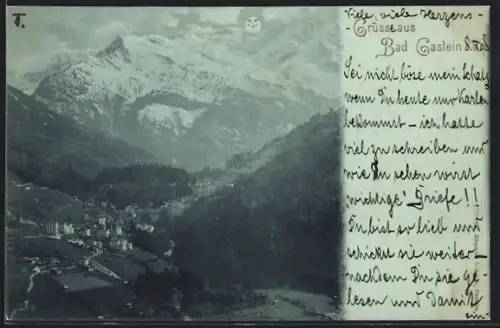 T.
Viele, viele Herzens-
Grüsse aus
Bad Gastein
Sei nicht böse mein Schatz
wenn Du heute nur Karten
bekommst – ich hatte
viel zu schreiben und
wie Du sehen wirst
wichtige Briefe!!
Du bist so lieb und
schickst sie weiter –
nachdem Du sie ge-
lesen und damit
ein-